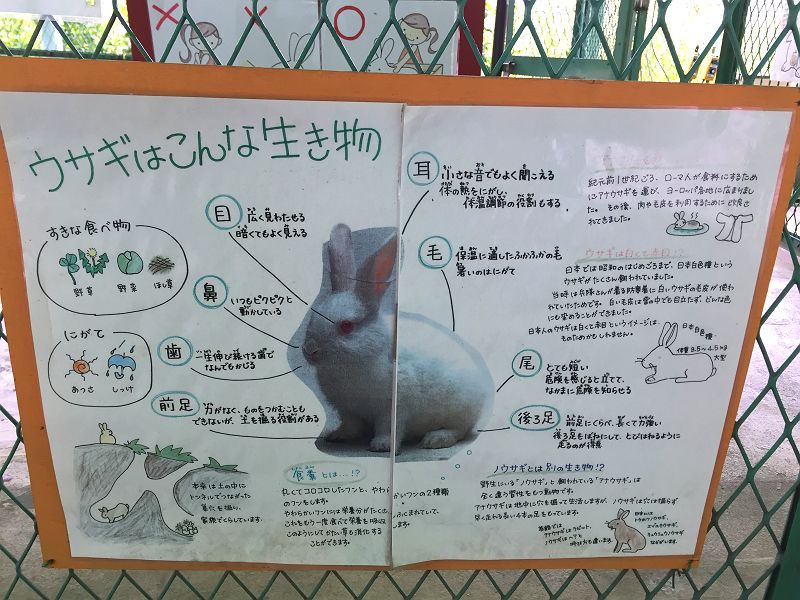 ウサギはこんな生き物
すきな食べ物
野草
野菜
ほし草
にがて
あつさ
しっけ
目
広く見わたせる
暗くてもよく見える
鼻
いつもピクピクと
動かしている
歯
一生伸び続ける歯で
なんでもかじる
前足
力がなく、ものをつかむことも
できないが、土を掘る役割がある
耳
小さな音でもよく聞こえる
体の熱をにがし、
体温調節の役割もする
毛
保温に適したふかふかの毛
暑いのはにがて
尾
とても短い
危険を感じると立てて、
なかまに危険を知らせる
後ろ足
前足にくらべ、長くて力強い
後ろ足をばねにして、とびはねるように
走るのが得意
本来は土の中に
トンネルでつながった
巣穴を掘り、
家族でくらしています。
食糞とは…!?
丸くてコロコロしたフンと、やわらかいフンの2種類
のフンをします。
やわらかいフンには栄養分がたくさんふくまれていて、
これをもう一度食べて栄養を吸収
このようにしてかたい草も消化する
ことができます。
紀元前1世紀ごろ、ローマ人が食料にするため
にアナウサギを運び、ヨーロッパ各地に広まりまし
た。その後、肉や毛皮を利用するために改良さ
れてきました。
ウサギは白くて赤目!?
日本では昭和のはじめごろまで、日本白色種という
ウサギがたくさん飼われていました。
当時は兵隊さんが着る防寒着に白いウサギの毛皮が使わ
れていたためです。白い毛皮は雪の中でも目立たず、どんな色
にも染めることができました。
日本人のウサギは白くて赤目というイメージは、
そのためかもしれません。
日本白色種
体重3.5～4.5kg
大型
ノウサギとは別の生き物!?
野生にいる「ノウサギ」と飼われている「アナウサギ」は
全く違う習性をもつ動物です。
アナウサギは地中に穴を掘って生活しますが、ノウサギは穴は掘らず
早く走れる長い4本の足をもっています。
英語では、
アナウサギはラビット、
ノウサギはヘアと
呼び方も違います。
日本には
トウホクノウサギ、
エゾユキウサギ、
キュウシュウノウサギ
などがいます。